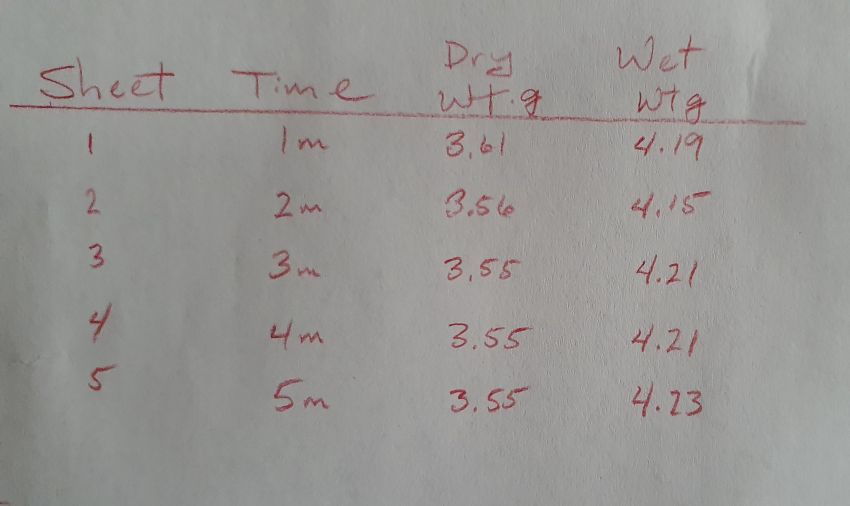 Sheet Time Dry Wt.g Wet Wtg
1 1m 3.61 4.19
2 2m 3.56 4.15
3 3m 3.55 4.21
4 4m 3.55 4.21
5 5m 3.55 4.23